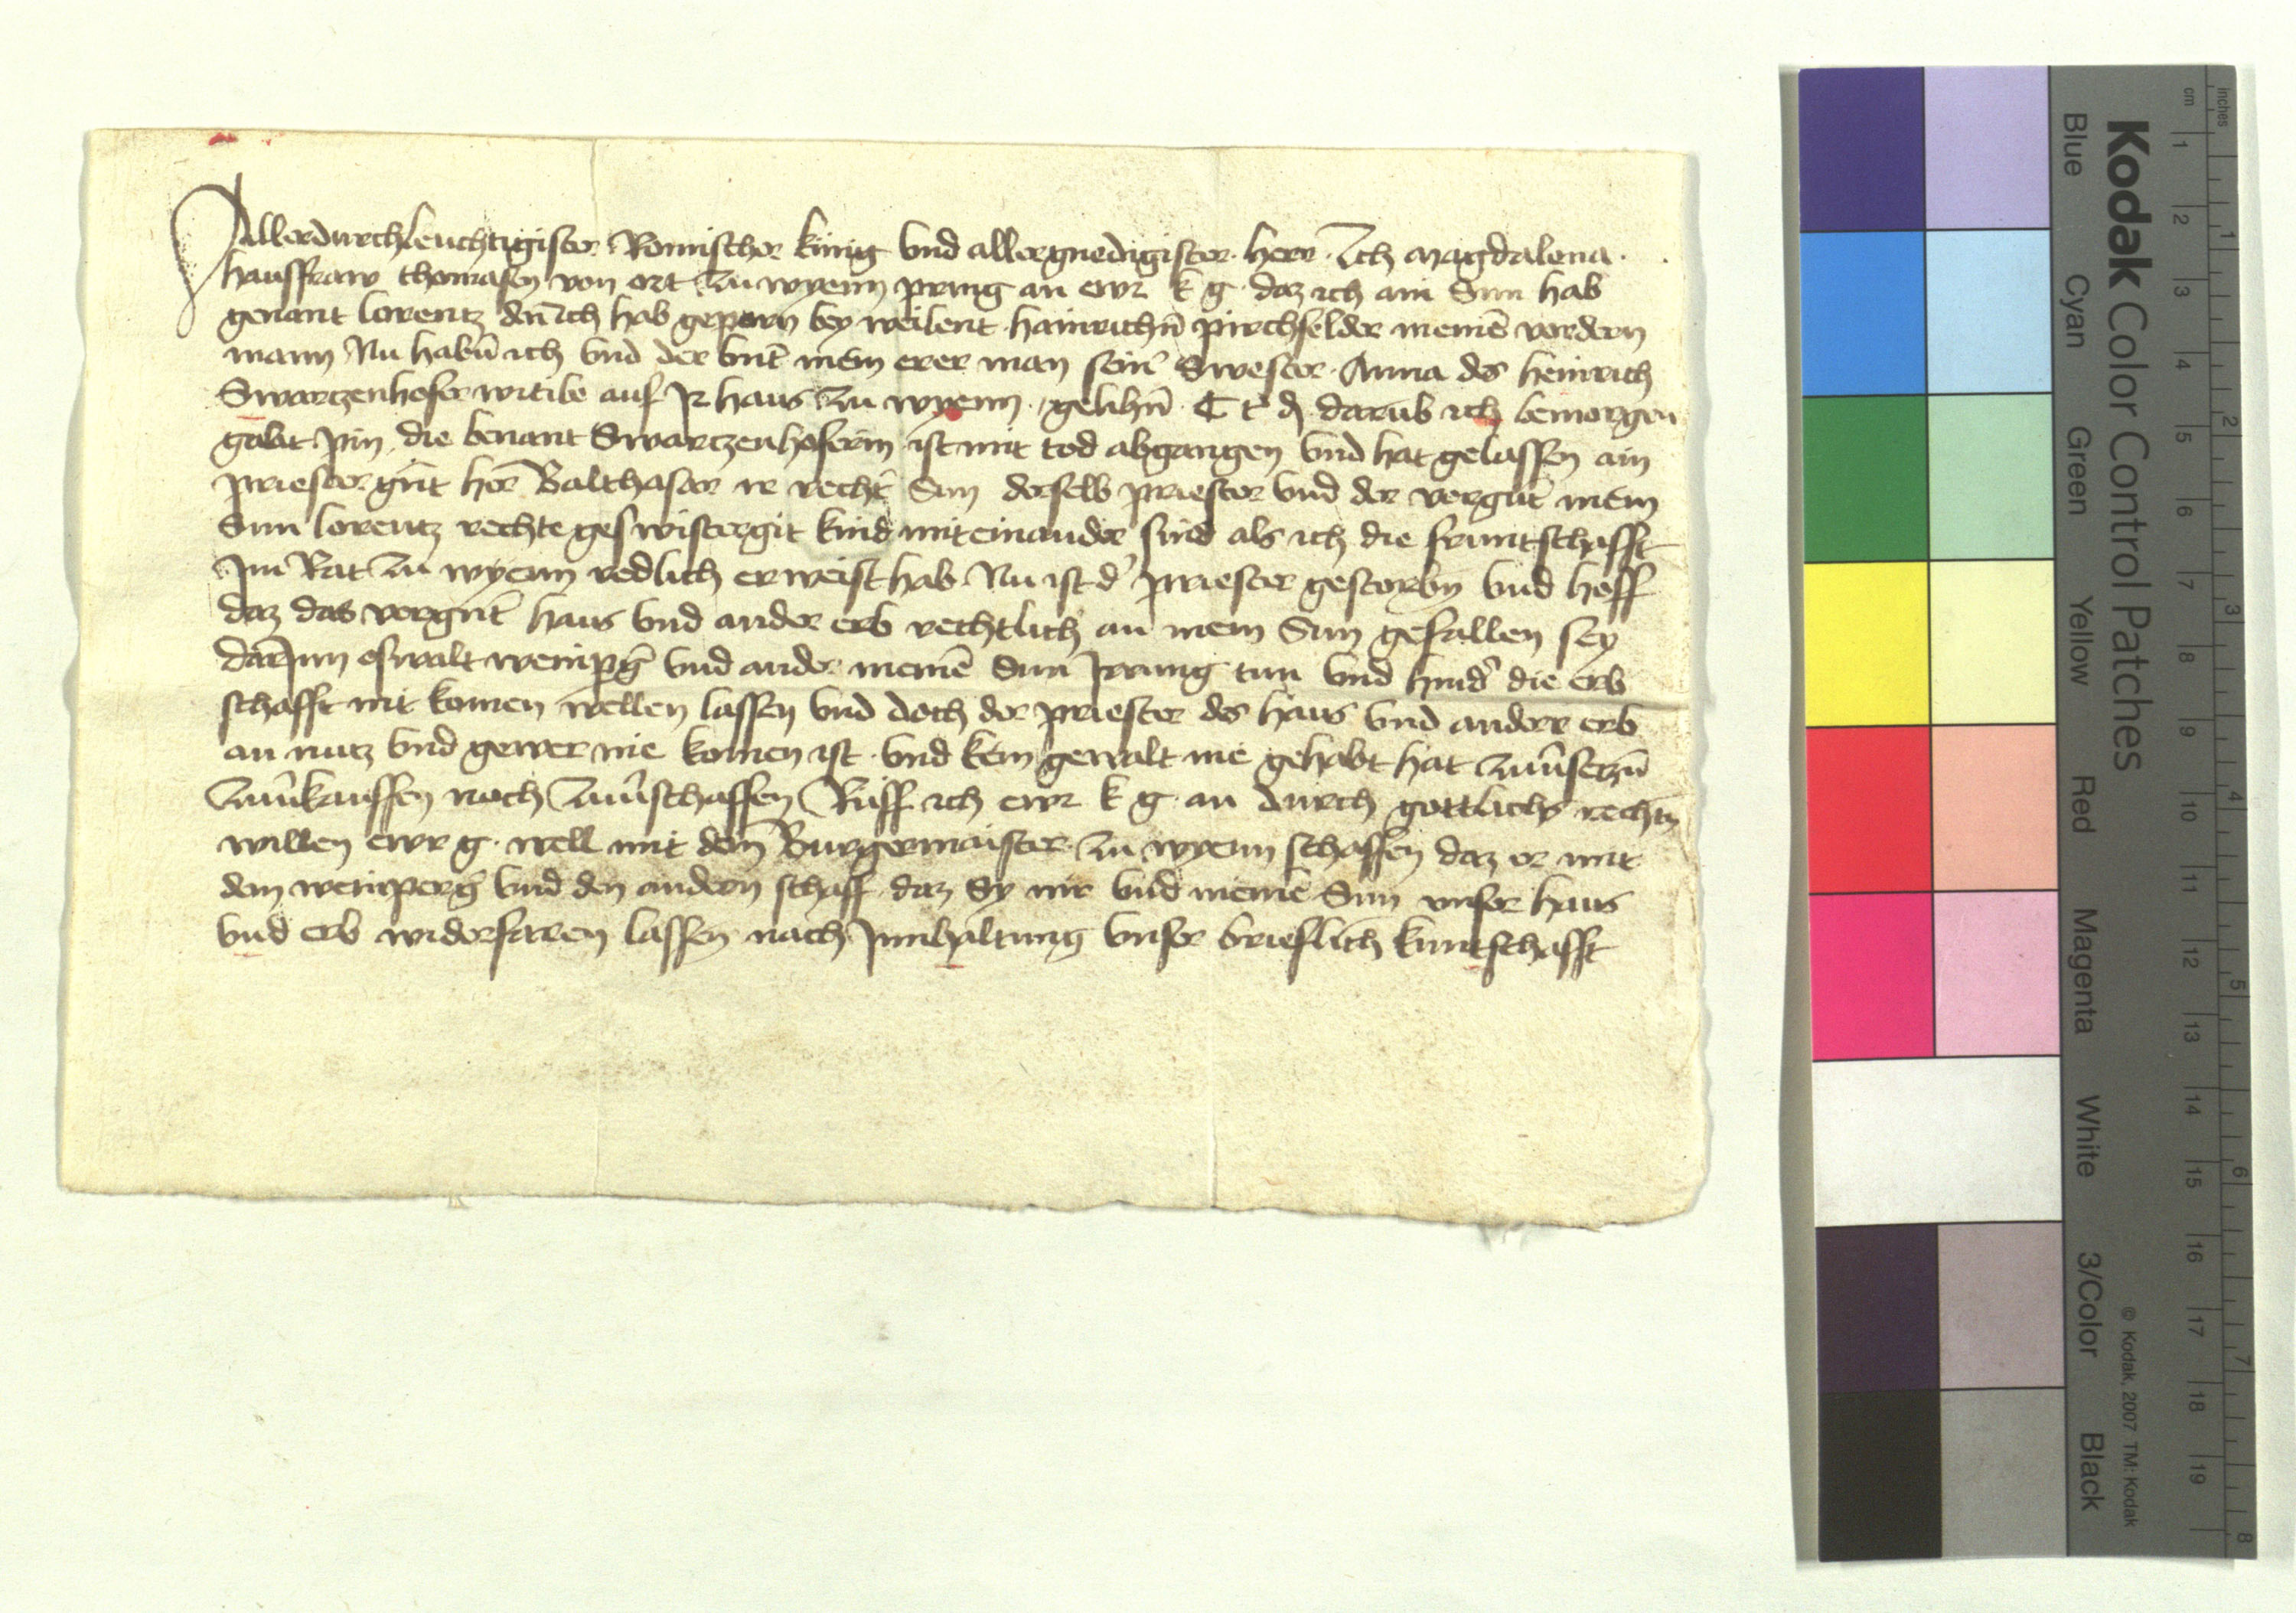 Allerdurchleuchtigister Romischer künig vnd allergnedigister herr Ich magdalena
hausfraw thomasen von ort zu wyenn pring an ewr k g daz ich ain Sun hab
genant lorentz den ich hab geporn bey weilent hainrichn̄ pirchfelder meinē vordern
mann Nu habn̄ ich vnd der bnt̄ mein erer man seinr̄ Swester Anna des heinrich
Swartzenhofer witibe auf Ir haus zu wyenn gelihn̄ C t ₰ darub ich bemorgen
gabt pin die benant Swartzenhoferin ist mit tod abgangen vnd hat gelassen ain
priester gnt̄ her Balthasar ir recht̄ Sun derselb priester vnd der vorgnt̄ mein
Sun lorentz rechte geswistergit kind miteinander sind als ich die fruntschafft
Im Rat zu wyenn redlich erweist hab Nu ist d' priester gestorbn̄ vnd hoff
daz das vorgnt̄ haus vnd ander erb rechtlich an mein Sun gefallen sey
darInn oswalt weinpḡ vnd ander meinē Sun Irrung tun vnd hind' die erb
schafft nit komen wellen lassen vnd doch der priester des haus vnd anderr erb
an nutz vnd gewer nie komen ist vnd kein gewalt nie gehabt hat zuu̇setzn̄
zuu̇kauffen noch zuu̇schaffen Rüff ich ewr k g an durch gottlichs rechtn̄
willen ewr g well mit dem Burgermaister zu wyenn schaffen daz er mit
dem weinperḡ vnd den andern schaff daz Sy mir vnd meinē Sun vnser haus
vnd erb widerfaren lassen nach Innhaltung vnser brieflich kuntschafft
Kodak Color Control Patches
Blue Cyan Green Yellow Red Magenta White 3/Color Black
© Kodak, 2007 TM: Kodak
inches 1 2 3 4 5 6 7 8
cm 1 2 3 4 5 6 7 8 9 10 11 12 13 14 15 16 17 18 19